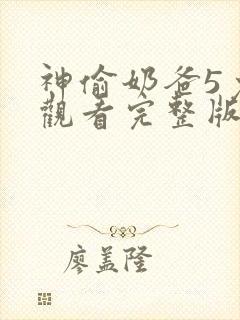 神偷奶爸5
觀看完整版
廖盖隆